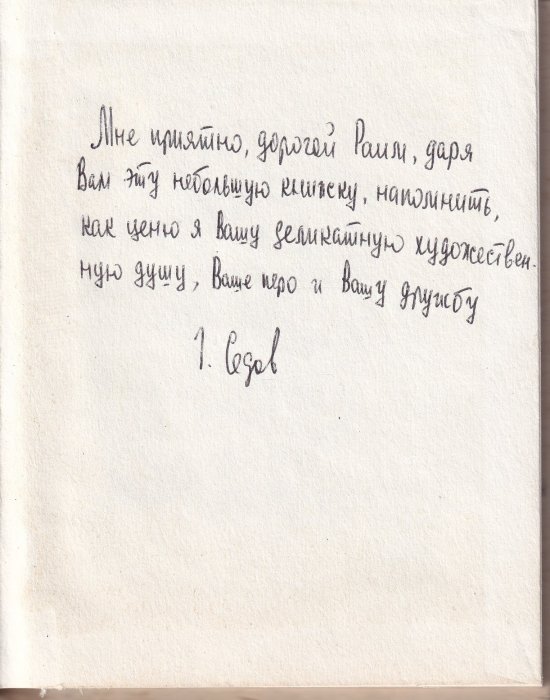 Мне приятно, дорогой Раим, даря
Вам эту небольшую книжку, напомнить,
как ценю я Вашу деликатную художествен-
ную душу, Ваше перо и Вашу дружбу
Г. Седов